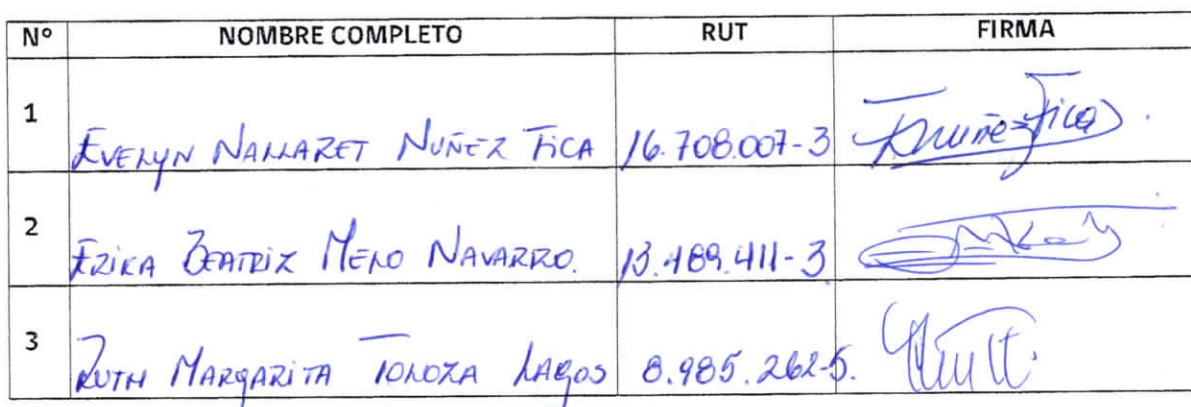 N° NOMBRE COMPLETO RUT FIRMA
1 EVELYN NALLARET NUÑEZ FICA 16.708.007-3 EnuñezFica.
2 ERIKA BEATRIZ MELO NAVARRO. 13.489.411-3
3 RUTH MARGARITA TOLOZA LAGOS 8.985.262-5.